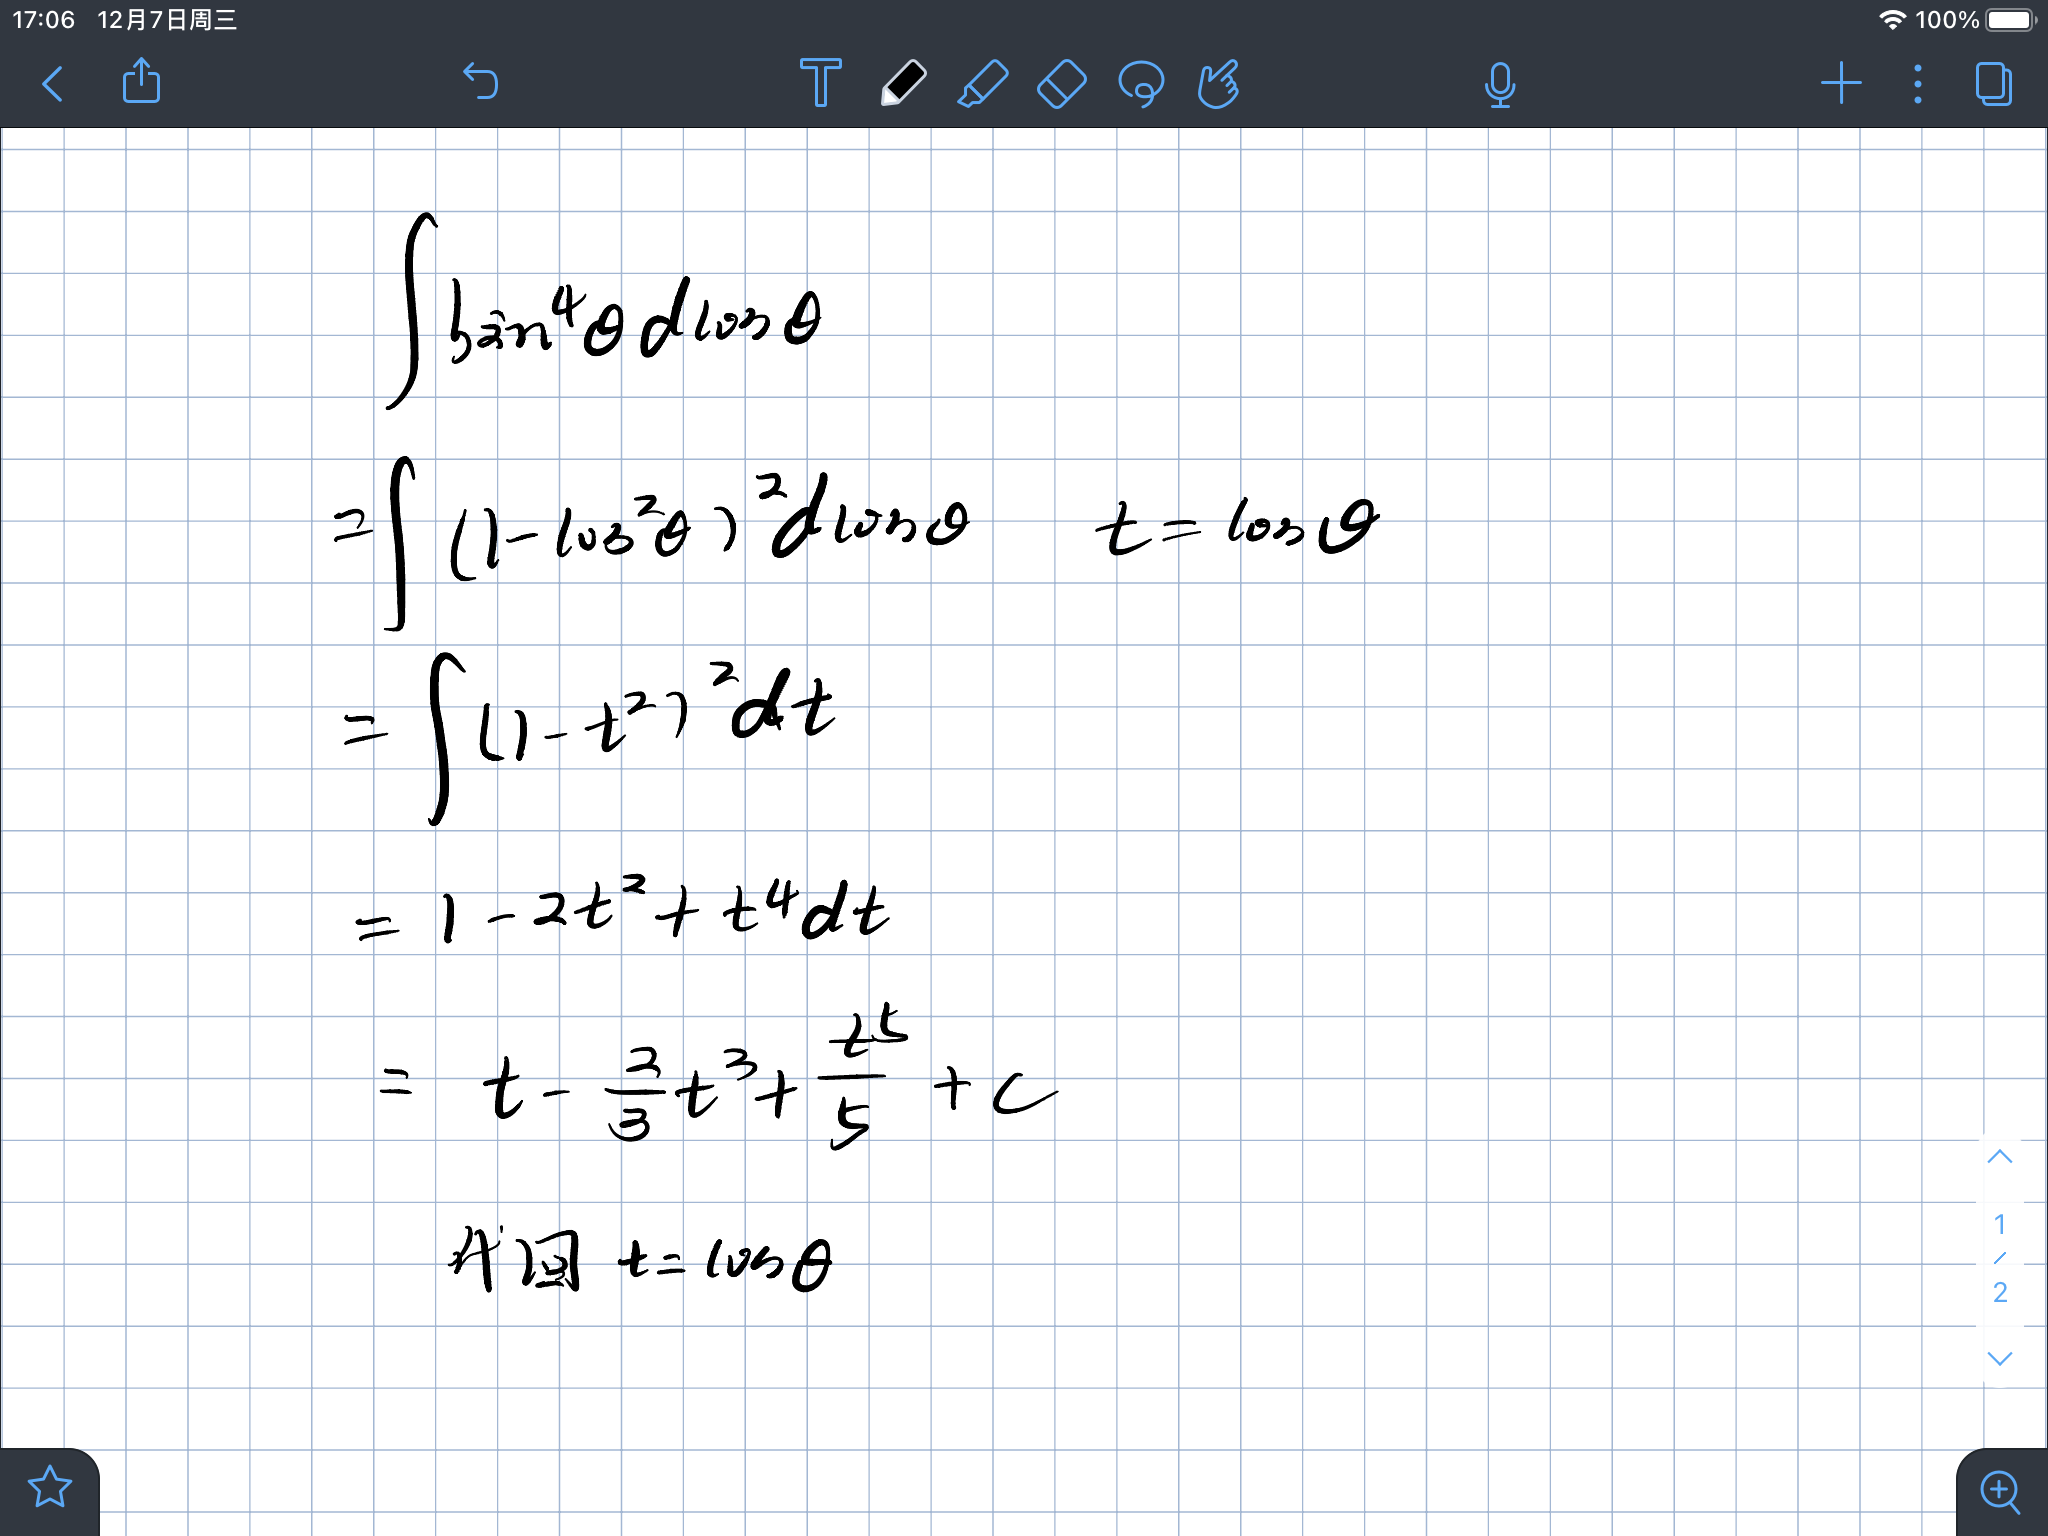 17:06 12月7日周三 100%
∫ sin⁴θ d cosθ
= ∫ (1 - cos²θ)² d cosθ t = cosθ
= ∫ (1 - t²)² dt
= 1 - 2t² + t⁴ dt
= t - 2/3 t³ + t⁵/5 + c
代回 t = cosθ
1
/
2